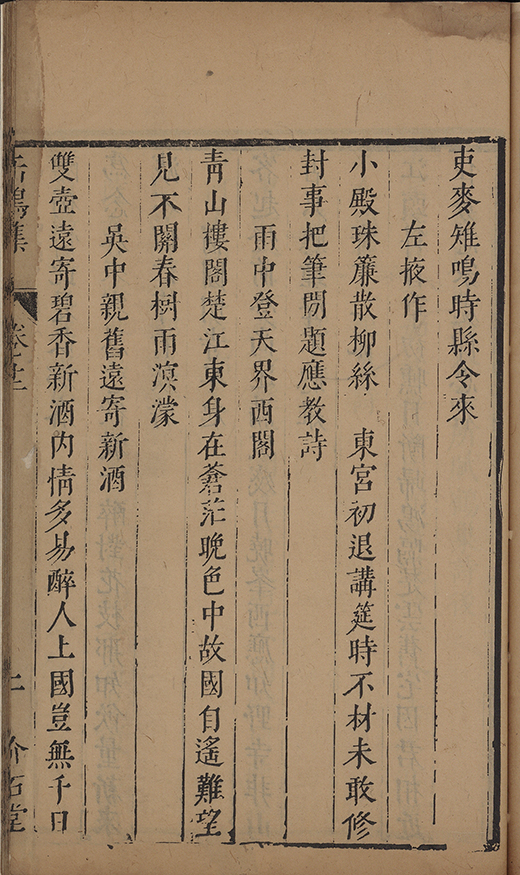 吏麥雉鳴時縣令來
左掖作
小殿珠簾散柳絲 東宮初退講筵時不材未敢修
封事把筆閒題應教詩
雨中登天界西閣
青山樓閣楚江東身在蒼茫晚色中故國自遙難望
見不關春樹雨溟濛
吳中親舊遠寄新酒
雙壺遠寄碧香新酒內情多易醉人上國豈無千日
缶鳴集 卷十二 二 介石堂